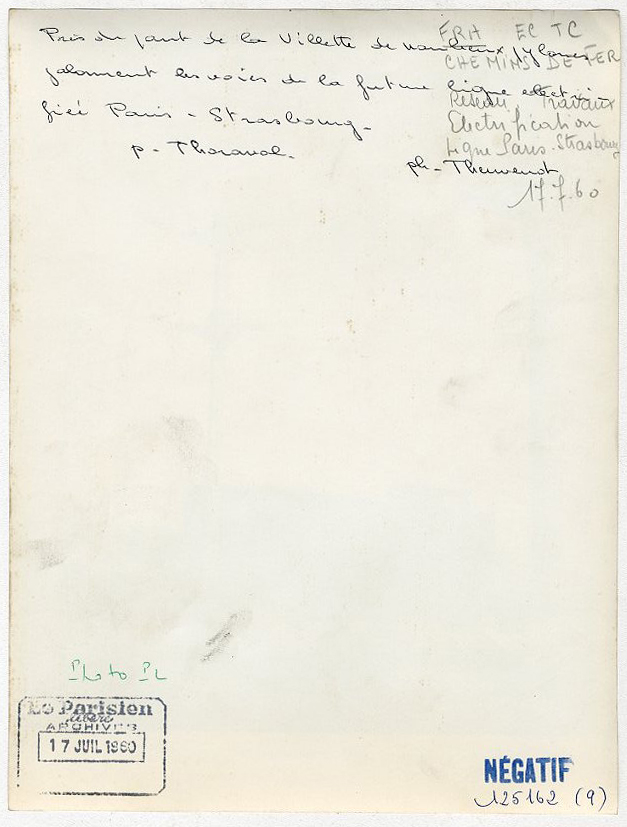 Près du pont de la Villette de nombreux pylones
jalonnent les voies de la future ligne electri-
fiée Paris - Strasbourg -
p - Thoraval -
ph - Thevenot
FRA EC TC
CHEMINS DE FER
Réseau Travaux
Electrification
Ligne Paris-Strasbourg
17.7.60
Photo PL
Le Parisien
libéré
ARCHIVES
17 JUIL 1960
NÉGATIF
125162 (9)